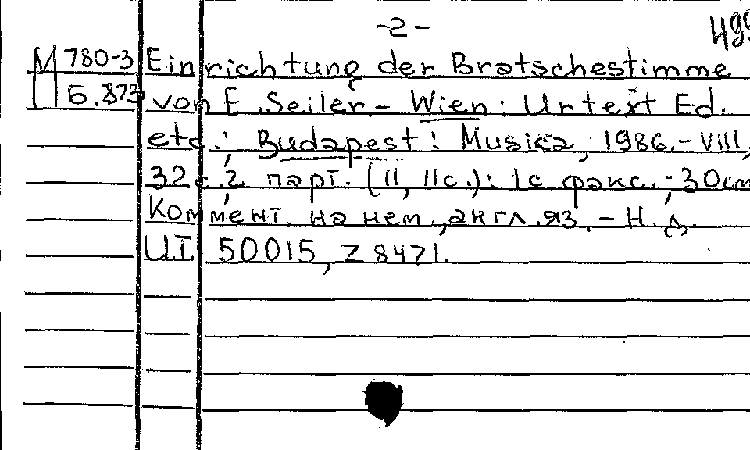 -2-
M 780-3 Einrichtung der Bratschestimme
Б.873 von E. Seiler – Wien: Urtext Ed.
etc.; Budapest: Musica, 1986.- VIII,
32 с. 2 парт. (11, 11с.): 1с факс.; 30см
Коммент. на нем., англ. яз. – Н. д.
U.T. 50015, Z 8471.